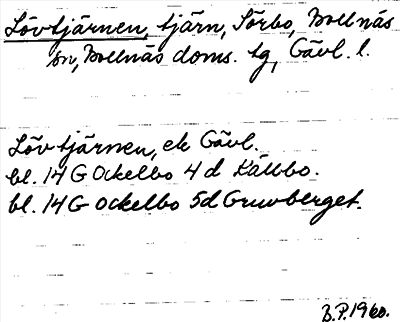 Lövtjärnen, tjärn, Sörbo, Bollnäs
sn, Bollnäs doms. tg, Gävl. l.
Lövtjärnen, ek Gävl.
bl. 14 G Ockelbo 4 d Källbo.
bl. 14 G Ockelbo 5d Gruvberget.
B.P. 1960.